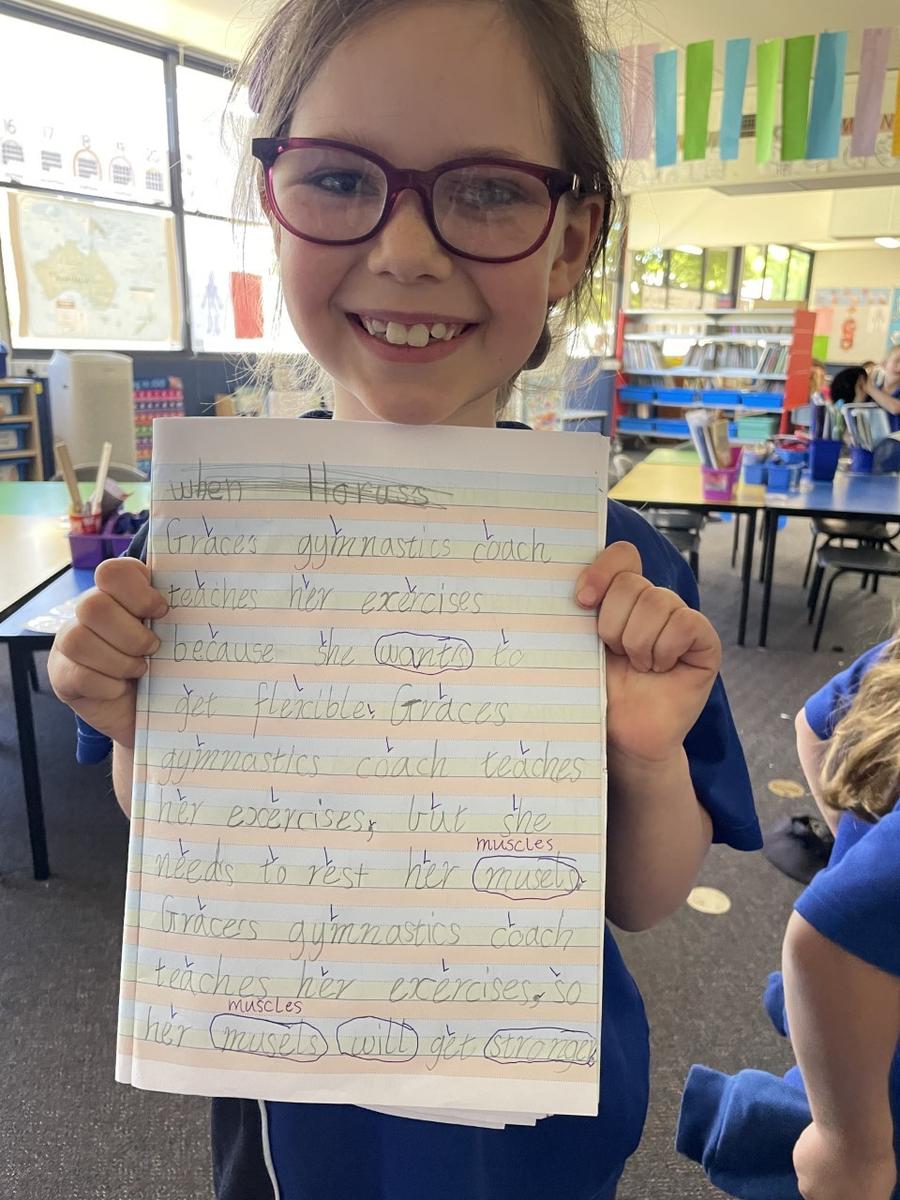 16 17 18 19 20
when Horuss
Graces gymnastics coach
teaches her exercises
because she wants to
get flexible. Graces
gymnastics coach teaches
her exercises, but she
muscles
needs to rest her musels.
Gracers gymnastics coach
teaches her exercises, so
muscles
her musels will get stronger